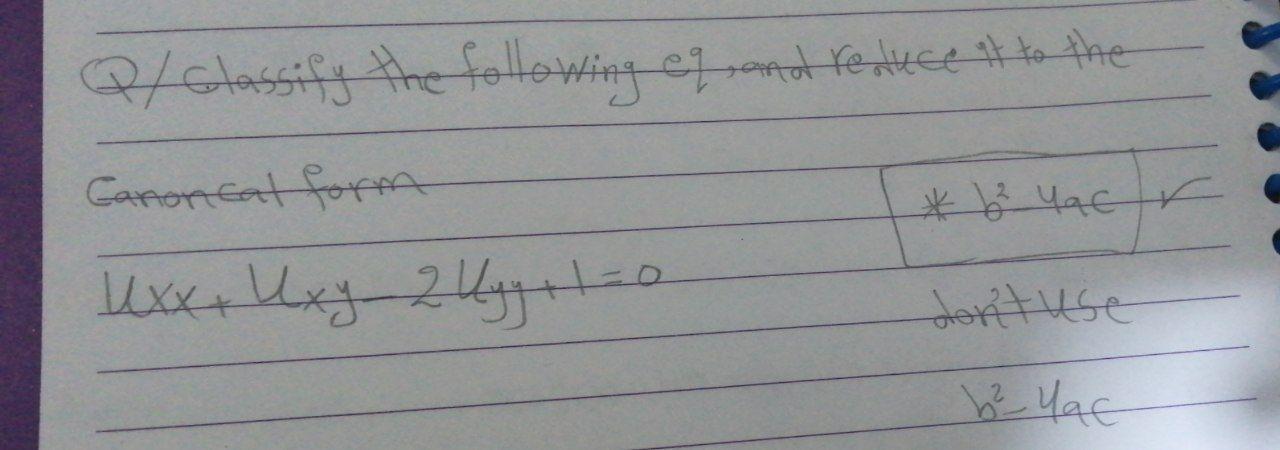 Q/ Classify the following eq, and reduce it to the
Canoncal form
* b² - 4ac ✓
Uxx + Uxy - 2Uyy + 1 = 0
don't use
b² - 4ac